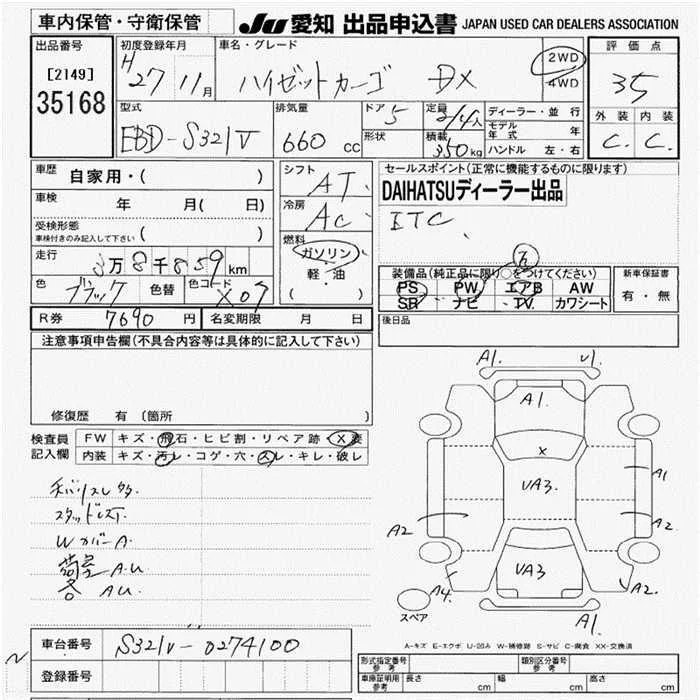 車内保管・守衛保管
JU 愛知 出品申込書 JAPAN USED CAR DEALERS ASSOCIATION
出品番号
[2149]
35168
初度登録年月
H27 11月
車名・グレード
ハイゼットカーゴ DX
2WD
4WD
評価点
3.5
外装 内装
C. C.
型式
EBD-S321V
排気量
660 cc
ドア
5
形状
定員
2/4人
積載
350kg
ディーラー・並行
モデル年式 年
ハンドル 左・右
車歴
自家用・( )
車検
年 月( 日)
受検形態
車検付きのみ記入して下さい ( )
走行
万8千859km
色
ブラック
色替
色コード
X07
シフト
AT
冷房
AC
燃料
ガソリン
・
軽・油
( )
セールスポイント(正常に機能するものに限ります)
DAIHATSUディーラー出品
ETC
装備品(純正品に限り○をつけてください)
PS PW エアB AW
SR ナビ TV カワシート
新車保証書
有・無
後日品
R券 7690円 名変期限 月 日
注意事項申告欄(不具合内容等は具体的に記入して下さい)
修復歴 有(箇所 )
検査員記入欄
FW キズ・飛石・ヒビ割・リペア跡・X要
内装 キズ・汚レ・コゲ・穴・スレ・キレ・破レ
スタッドレスT.
WカバーA.
荷室A.U
各 AU.
A1. U1.
A1.
X
UA3.
A1
A2
A2
UA3
A4.
A2.
A1.
スペア
A-キズ E-エクボ U-凹み W-補修跡 S-サビ C-腐食 XX-交換済
車台番号 S321V-0274100
登録番号
形式指定番号 参考
類別区分番号 参考
車庫証明用 参考 長さ cm 幅 cm 高さ cm